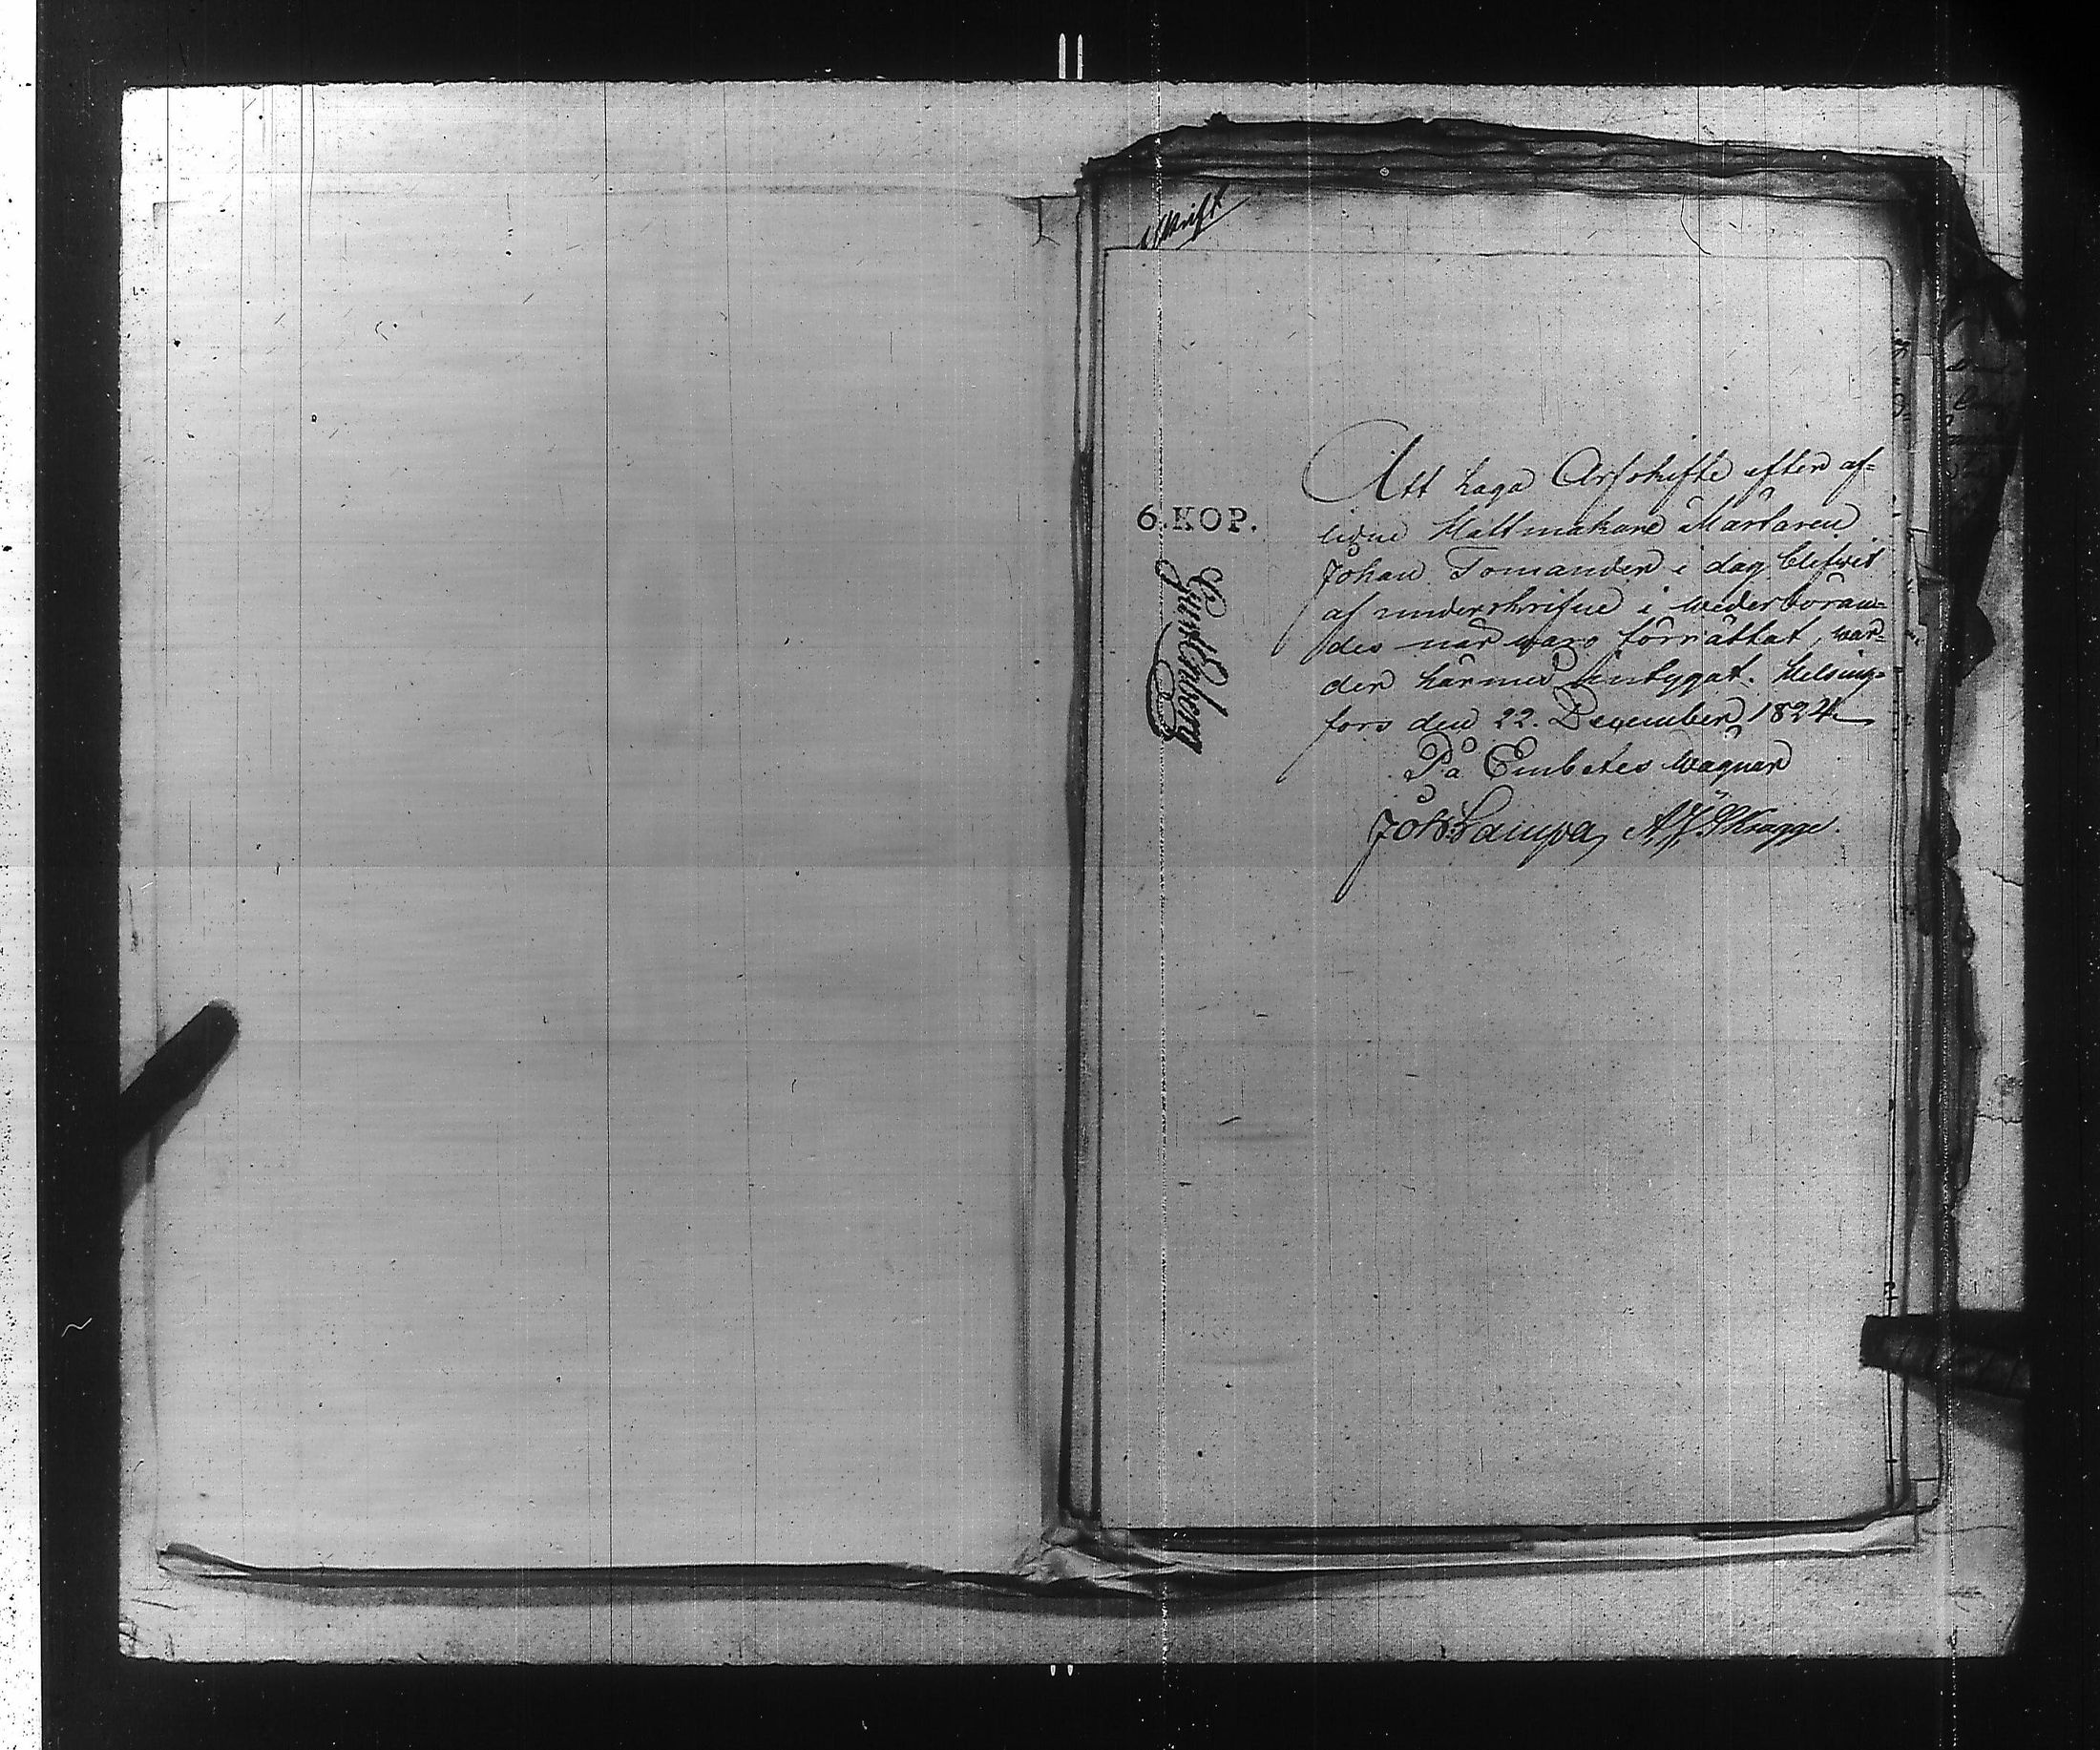 Afskrift
Att laga Arfskifte efter af-
lidne Hattmakare Mästaren
Johan Tomander i dag blifwit
af underskrifne i wederböran-
des när waro förrättat, war-
der härmed intygat. Helsing-
fors den 22. December 1824
På Embetes wägnar
Joh: Lampa, A. J. Skragge.
6. KOP.